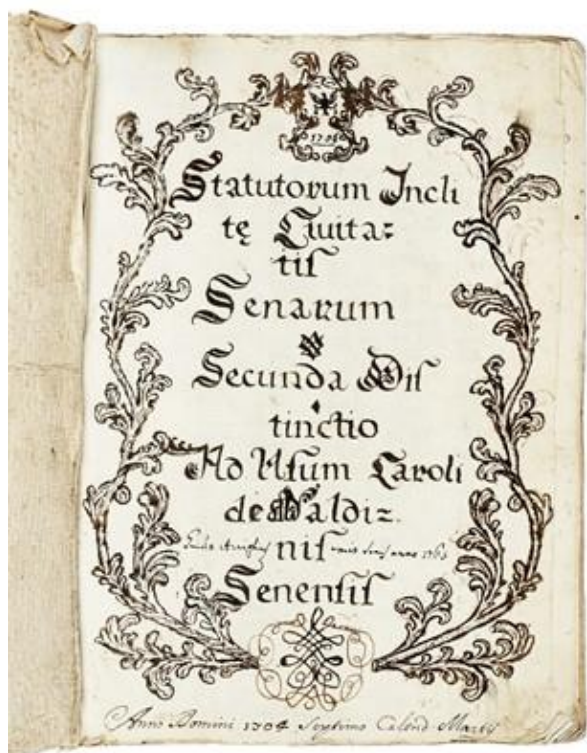 1704
Statutorum Incli
tę Ciuita=
tis
Senarum
Secunda Dis
tinctio
Ad Usum Caroli
de Valdi=
nis
anno 176
Senensis
Anno Domini 1704 Septimo Calend Martij